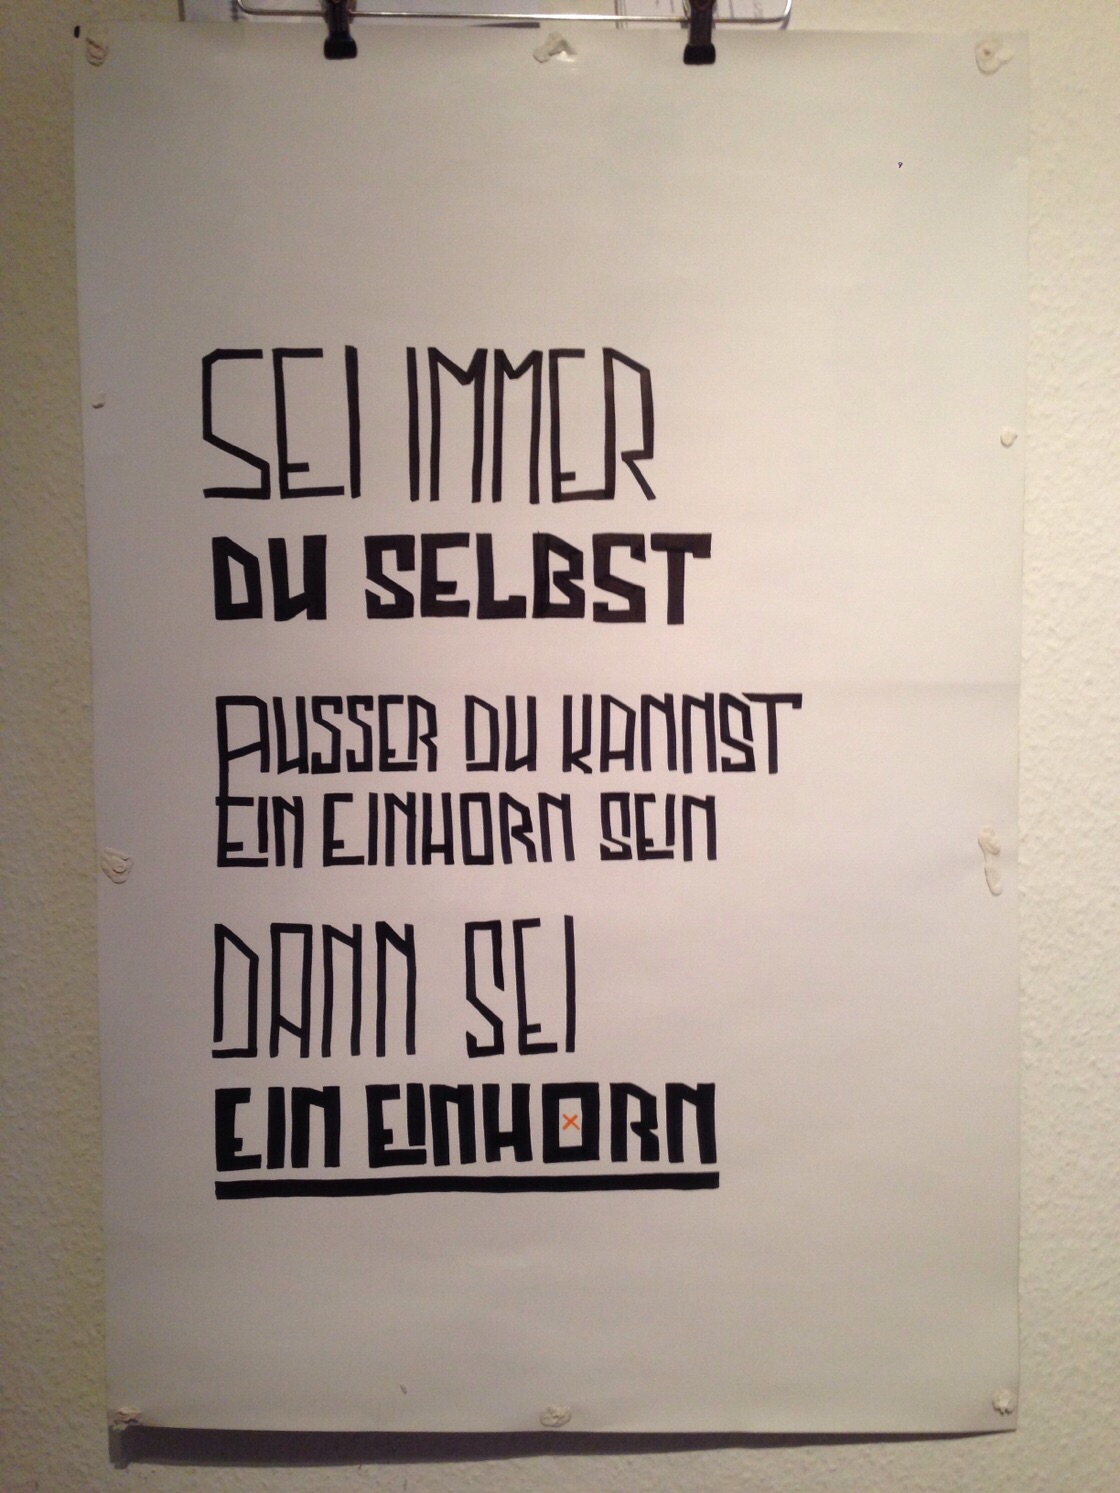 SEI IMMER
DU SELBST
AUSSER DU KANNST
EIN EINHORN SEIN
DANN SEI
EIN EINHORN